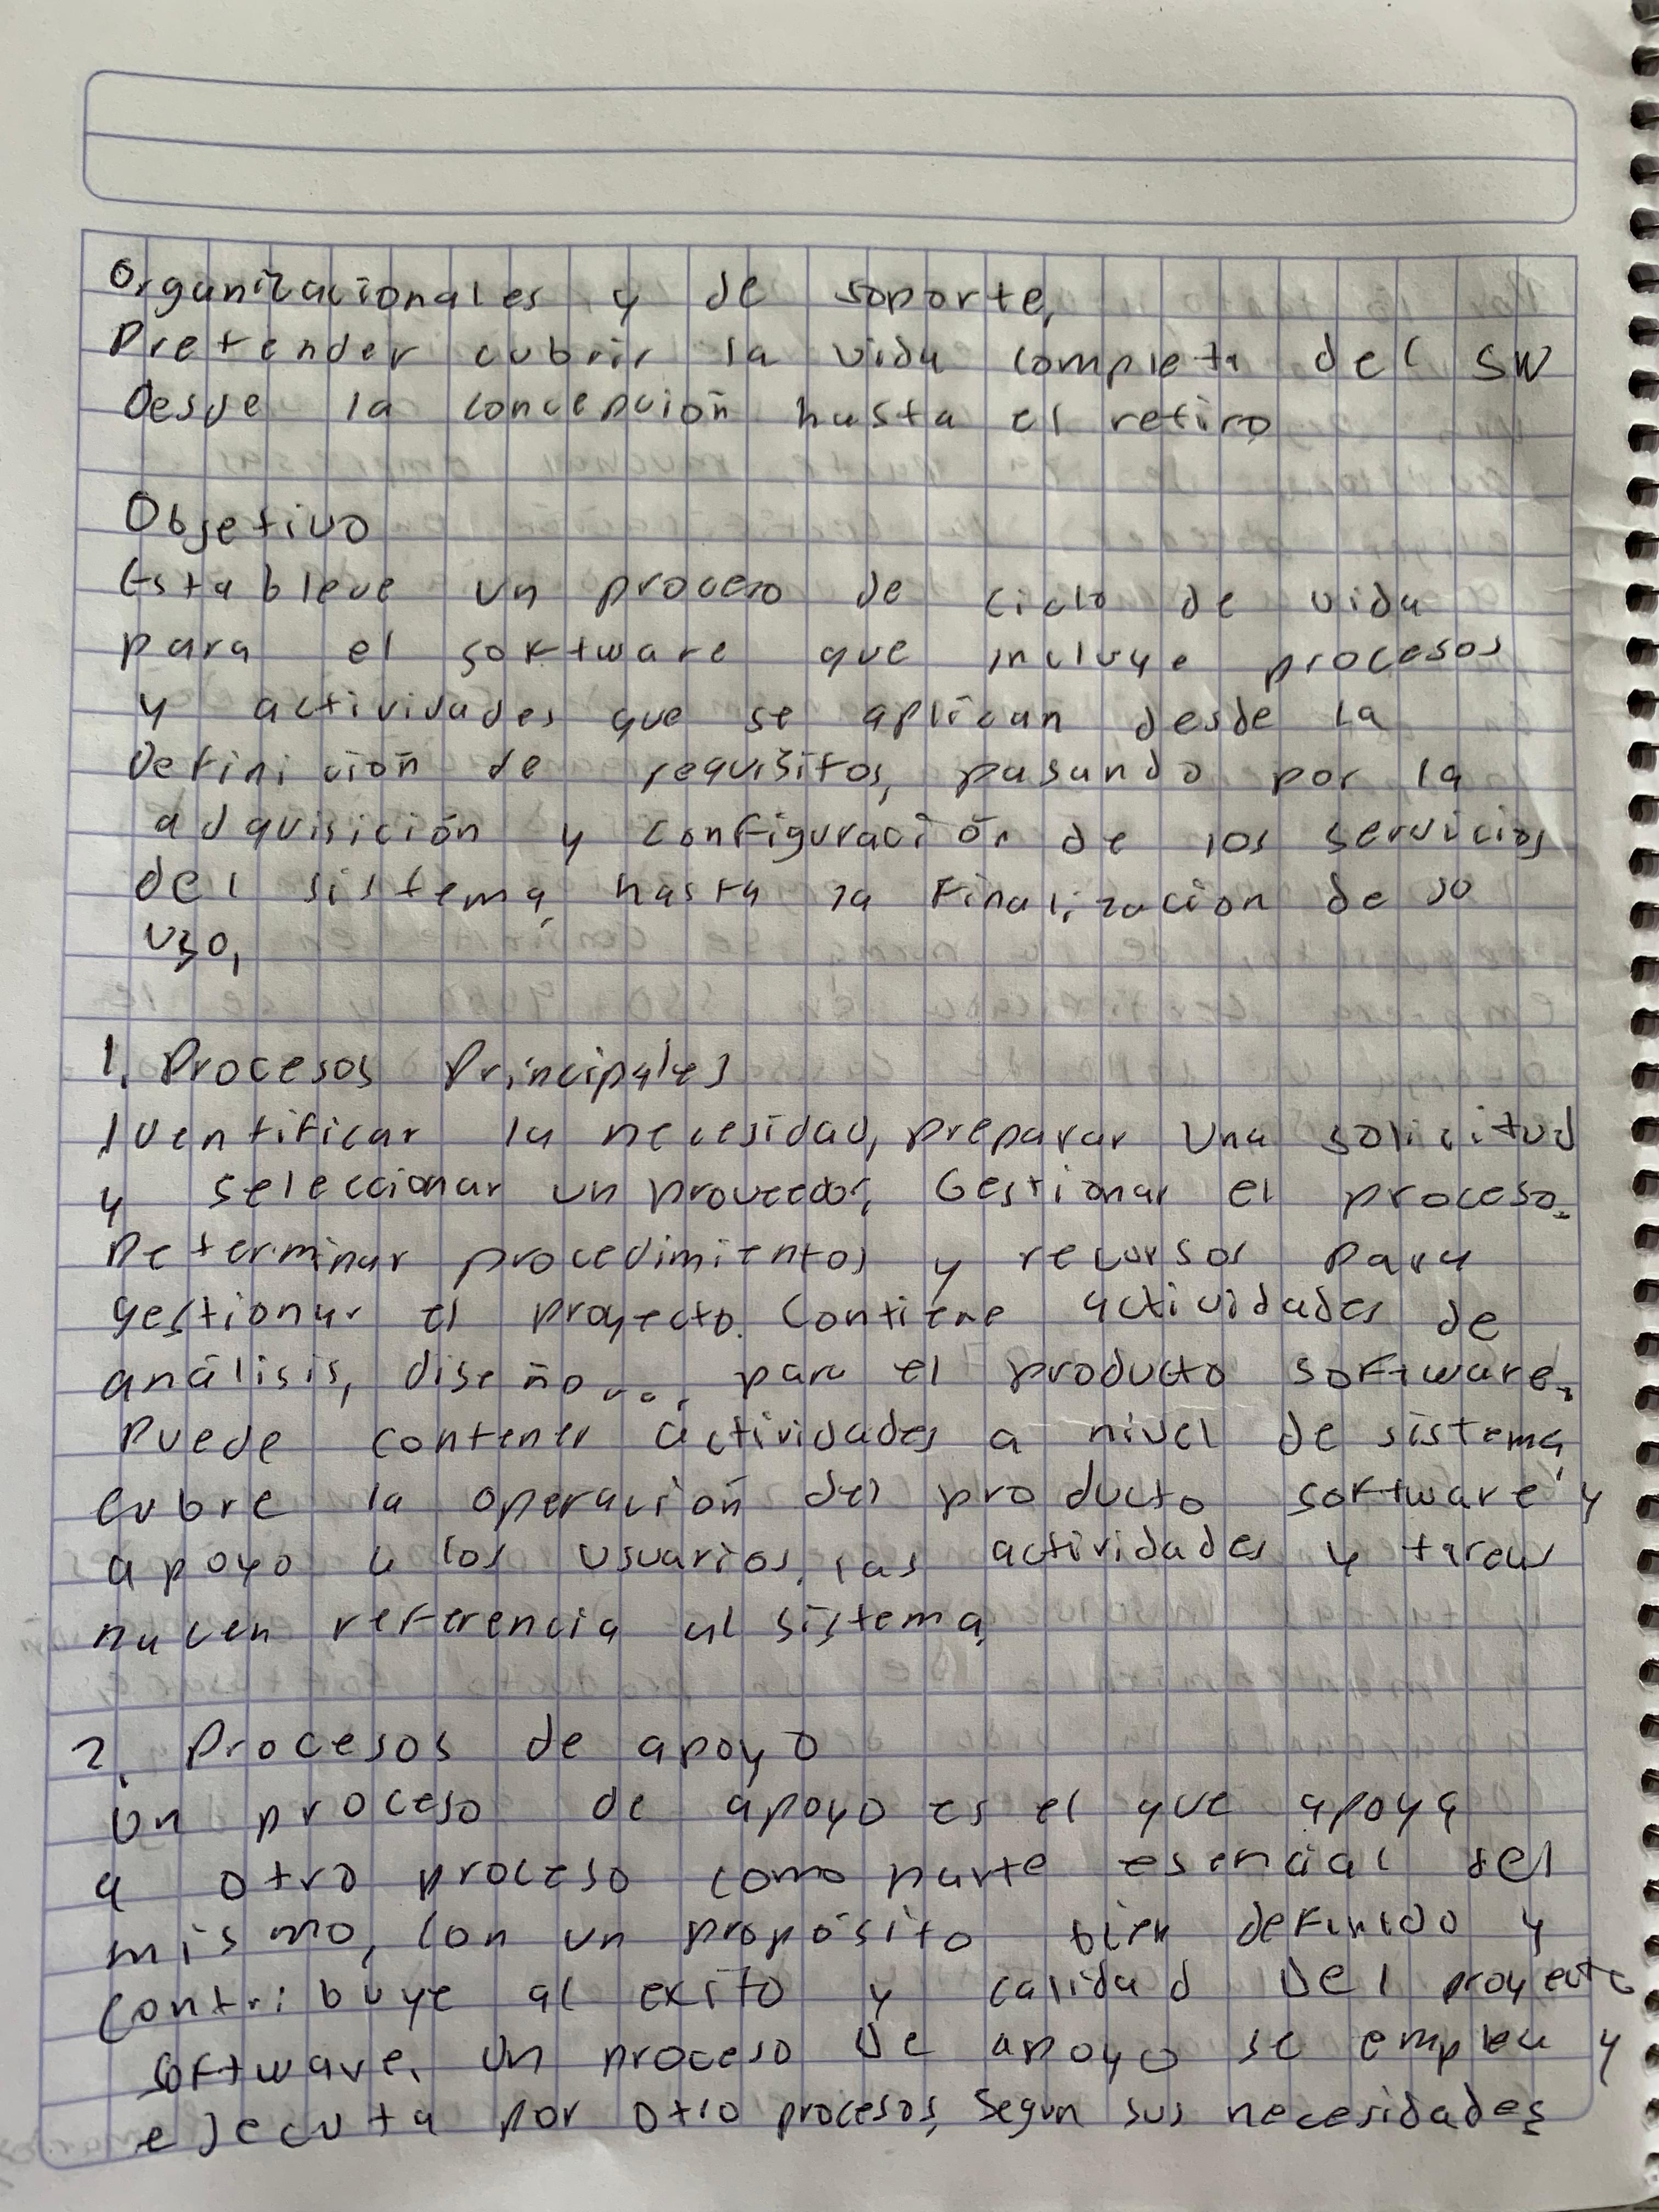 Organizacionales y de soporte,
Pretender cubrir la vida completa del SW
Desde la concepción hasta el retiro

Objetivo
Establece un proceso de ciclo de vida
para el software que incluye procesos
y actividades que se aplican desde la
Definición de requisitos, pasando por la
adquisición y configuración de los servicios
del sistema, hasta la finalización de so
uso,

1. Procesos Principales
Identificar la necesidad, preparar una solicitud
y seleccionar un proveedor, Gestionar el proceso.
Determinar procedimientos y recursos para
gestionar el proyecto. Contiene actividades de
análisis, diseño... para el producto software.
Puede contener actividades a nivel de sistema,
cubre la operación del producto software y
apoyo a los usuarios, las actividades y tareas
hacen referencia al sistema,

2. Procesos de apoyo
Un proceso de apoyo es el que apoya
a otro proceso como parte esencial del
mismo, con un propósito bien definido y
contribuye al exito y calidad del proyecto
software. Un proceso De apoyo se emplea y
ejecuta por otro procesos, segun sus necesidades